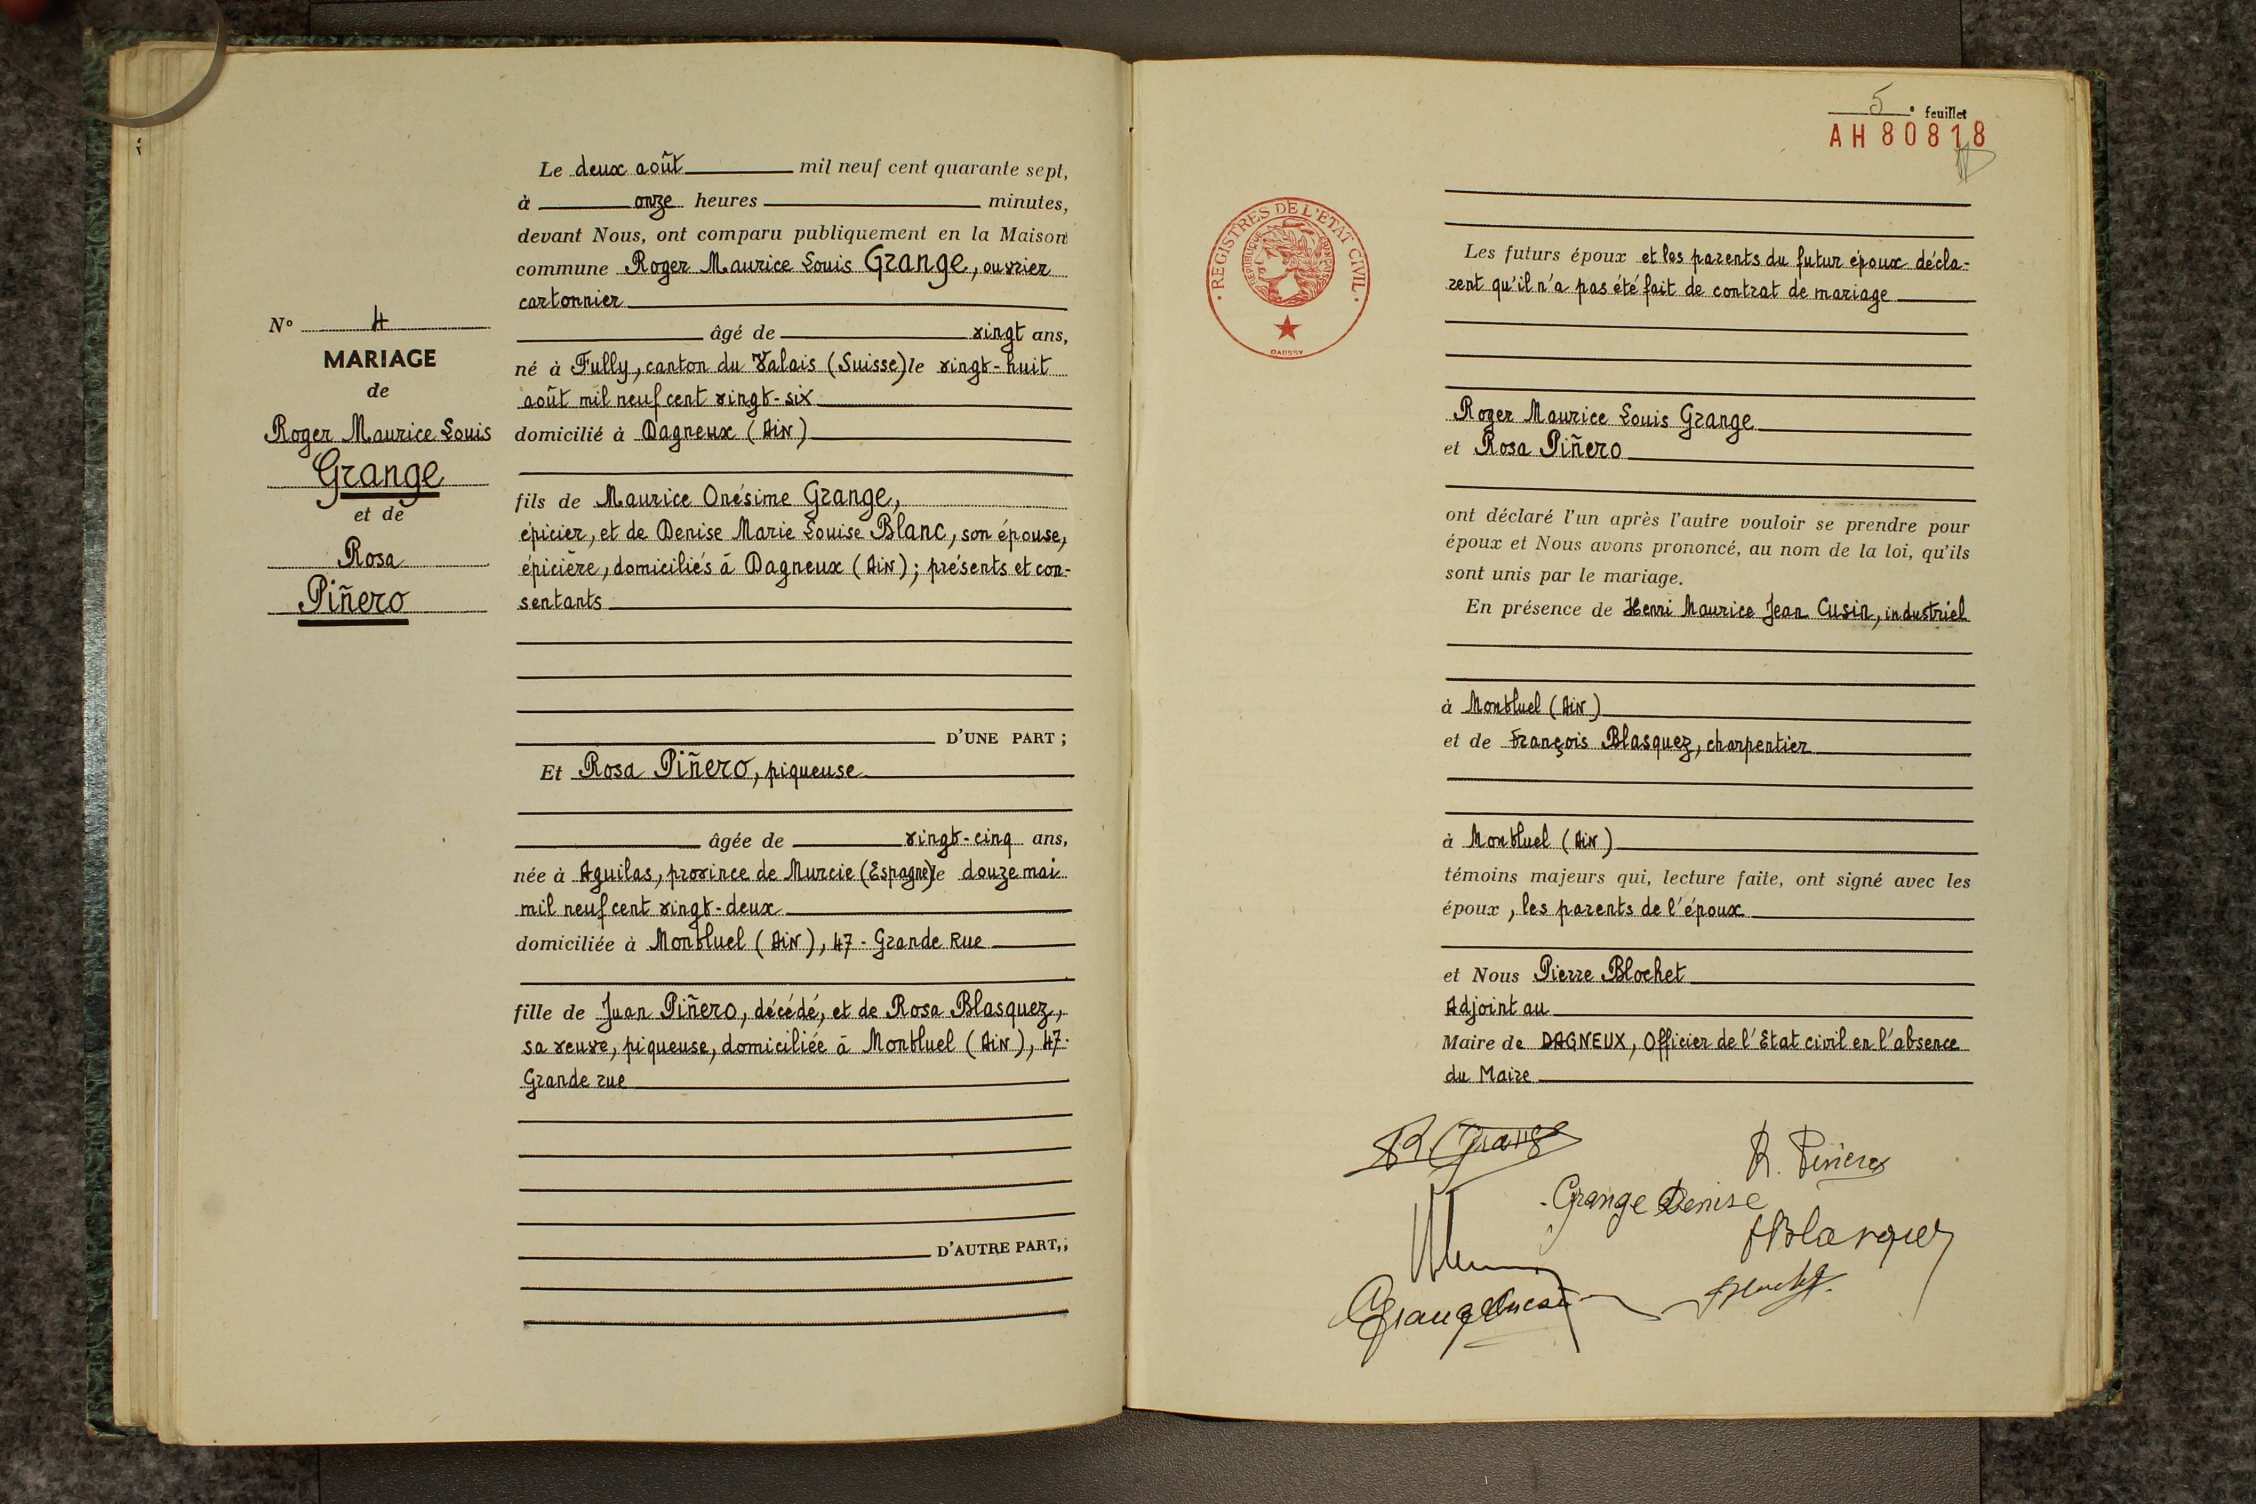 N° 4
MARIAGE
de
Roger Maurice Louis
Grange
et de
Rosa
Piñero
Le deux août mil neuf cent quarante sept,
à onze heures minutes,
devant Nous, ont comparu publiquement en la Maison
commune Roger Maurice Louis Grange, ouvrier
cartonnier
âgé de vingt ans,
né à Fully, canton du Valais (Suisse) le vingt-huit
août mil neuf cent vingt-six
domicilié à Dagneux (Ain)
fils de Maurice Onésime Grange,
épicier, et de Denise Marie Louise Blanc, son épouse,
épicière, domiciliés à Dagneux (Ain); présents et con-
sentants
D'UNE PART;
Et Rosa Piñero, piqueuse
âgée de vingt-cinq ans,
née à Aguilas, province de Murcie (Espagne) le douze mai
mil neuf cent vingt-deux
domiciliée à Montluel (Ain), 47 - Grande Rue
fille de Juan Piñero, décédé, et de Rosa Blasquez,
sa veuve, piqueuse, domiciliée à Montluel (Ain), 47-
Grande rue
D'AUTRE PART,;
5e feuillet
AH 80818
REGISTRES DE L'ETAT CIVIL
REPUBLIQUE FRANÇAISE
DAUSSY
Les futurs époux et les parents du futur époux décla-
rent qu'il n'a pas été fait de contrat de mariage
Roger Maurice Louis Grange
et Rosa Piñero
ont déclaré l'un après l'autre vouloir se prendre pour
époux et Nous avons prononcé, au nom de la loi, qu'ils
sont unis par le mariage.
En présence de Henri Maurice Jean Cusin, industriel
à Montluel (Ain)
et de François Blasquez, charpentier
à Montluel (Ain)
témoins majeurs qui, lecture faite, ont signé avec les
époux, les parents de l'époux
et Nous Pierre Blochet
Adjoint au
Maire de DAGNEUX, Officier de l'Etat civil en l'absence
du Maire
R Grange
R. Piñero
Grange Denise
F Blasquez
Grange
Blochet